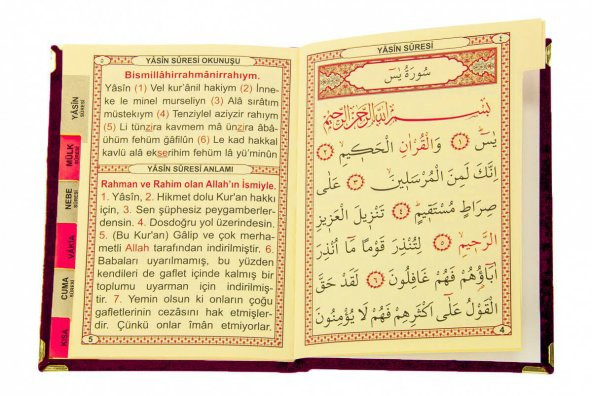 YÂSİN SÛRESİ
سُورَةُ يٰسٓ
بِسْمِ اللّٰهِ الرَّحْمٰنِ الرَّحِيمِ
يٰسٓ ﴿١﴾ وَالْقُرْاٰنِ الْحَكِيمِ ﴿٢﴾
اِنَّكَ لَمِنَ الْمُرْسَلِينَ ﴿٣﴾ عَلٰى
صِرَاطٍ مُسْتَقِيمٍ ﴿٤﴾ تَنْزِيلَ الْعَزِيزِ
الرَّحِيمِ ﴿٥﴾ لِتُنْذِرَ قَوْمًا مَٓا اُنْذِرَ
اٰبَٓاؤُ۬هُمْ فَهُمْ غَافِلُونَ ﴿٦﴾ لَقَدْ حَقَّ
الْقَوْلُ عَلٰٓى اَكْثَرِهِمْ فَهُمْ لَا يُؤْمِنُونَ
4
YÂSİN SÛRESİ OKUNUŞU
Bismillâhirrahmânirrahıym.
Yâsîn (1) Vel kur'ânil hakiym (2) İnne-
ke le minel murseliyn (3) Alâ sırâtım
müstekıym (4) Tenziylel aziyzir rahıym
(5) Li tünzira kavmem mâ ünzira âbâ-
ühüm fehüm ğâfilûn (6) Le kad hakkal
kavlü alâ ekserihim fehüm lâ yü'minûn
YÂSİN SÛRESİ ANLAMI
Rahman ve Rahim olan Allah'ın İsmiyle.
1. Yâsîn, 2. Hikmet dolu Kur'an hakkı
için, 3. Sen şüphesiz peygamberler-
densin. 4. Dosdoğru yol üzerindesin.
5. (Bu Kur'an) Gâlip ve çok merha-
metli Allah tarafından indirilmiştir. 6.
Babaları uyarılmamış, bu yüzden
kendileri de gaflet içinde kalmış bir
toplumu uyarman için indirilmiş-
tir. 7. Yemin olsun ki onların çoğu
gafletlerinin cezasını hak etmişler-
dir. Çünkü onlar îmân etmiyorlar.
5
YÂSİN
SÛRESİ
MÜLK
SÛRESİ
NEBE
SÛRESİ
VÂKIA
CUMA
SÛRESİ
KISA